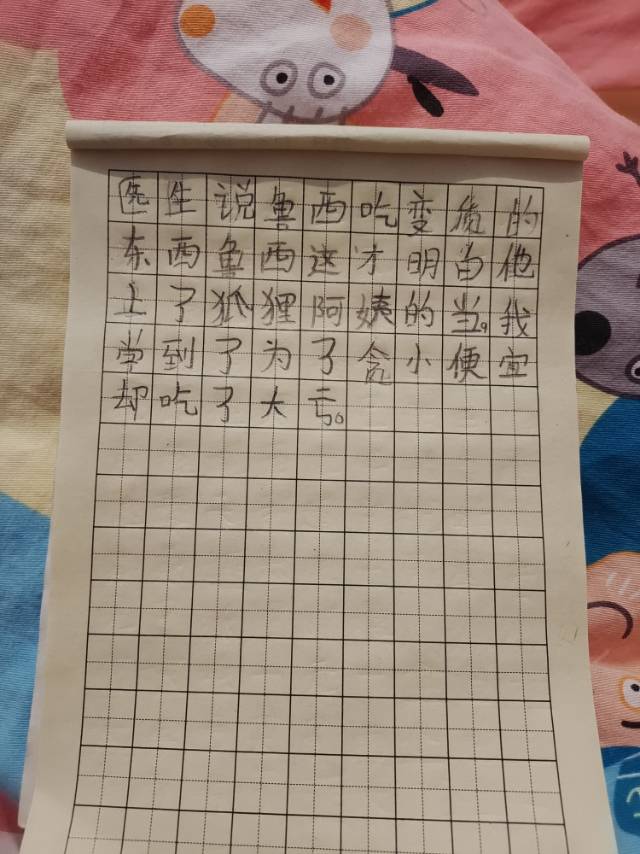 医生说鲁西吃变质的
东西鱼西这才明白他
上了狐狸阿姨的当。我
学到了为了贪小便宜
却吃了大亏。